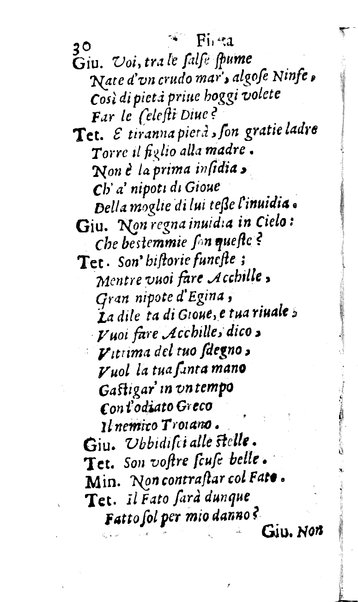 30 Finta
Giu. Voi, tra le salse spume
Nate d'vn crudo mar', algose Ninfe,
Così di pietà priue hoggi volete
Far le Celesti Diue?
Tet. E tiranna pietà, son gratie ladre
Torre il figlio alla madre.
Non è la prima insidia,
Ch' a' nipoti di Gioue
Della moglie di lui tesse l'inuidia.
Giu. Non regna inuidia in Cielo:
Che bestemmie son queste?
Tet. Son' historie funeste;
Mentre vuoi fare Acchille,
Gran nipote d'Egina,
La dile ta di Gioue, e tua riuale,
Vuoi fare Acchille, dico,
Vittima del tuo sdegno,
Vuol la tua santa mano
Gastigar' in vn tempo
Con l'odiato Greco
Il nemico Troiano.
Giu. Vbbidisci alle stelle.
Tet. Son vostre scuse belle.
Min. Non contrastar col Fato.
Tet. Il Fato sarà dunque
Fatto sol per mio danno?
Giu. Non